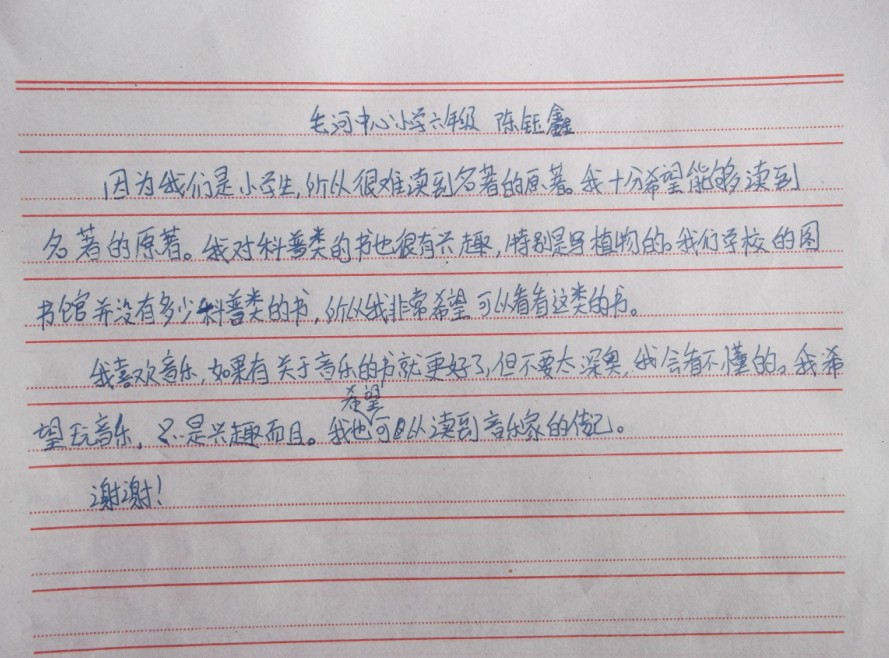 长河中心小学六年级 陈钰鑫
因为我们是小学生,所以很难读到名著的原著。我十分希望能够读到
名著的原著。我对科普类的书也很有兴趣,特别是写植物的。我们学校的图
书馆并没有多少科普类的书,所以我非常希望可以看看这类的书。
我喜欢音乐,如果有关于音乐的书就更好了,但不要太深奥,我会看不懂的。我希
望玩音乐,只是兴趣而且。我也希望可以读到音乐家的传记。
谢谢!